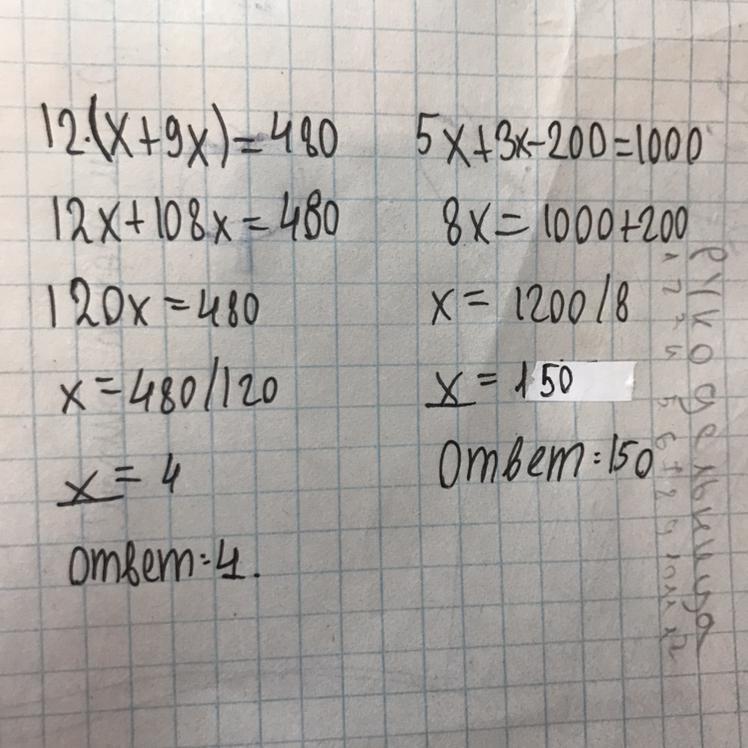 12·(x+9x)=480
12x+108x=480
120x=480
x=480/120
x=4
ответ:4.
5x+3x-200=1000
8x=1000+200
x=1200/8
x=150
Ответ:150
рукодельница